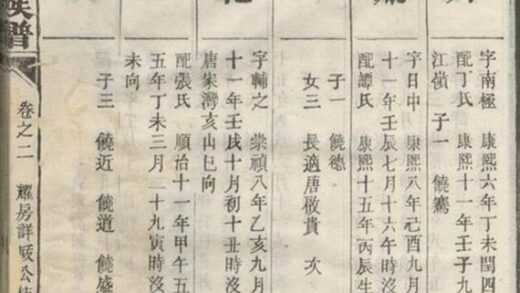 字南極 康熙六年丁未閏四
配丁氏 康熙十一年壬子九
江嶺 子一 饒鸞
字日中 康熙八年己酉九月
十一年壬辰七月十六午時沒
配譚氏 康熙十五年丙辰生
子一 饒德
女三 長適唐敬貴 次
字輔之 崇禎八年乙亥九月
十一年壬戌十月初十丑時沒
唐家灣亥山巳向
配張氏 順治十一年甲午五
五年丁未三月二十九寅時沒
未向
子三 饒近 饒道 饒盛
族譜 卷之二 耀房詳公